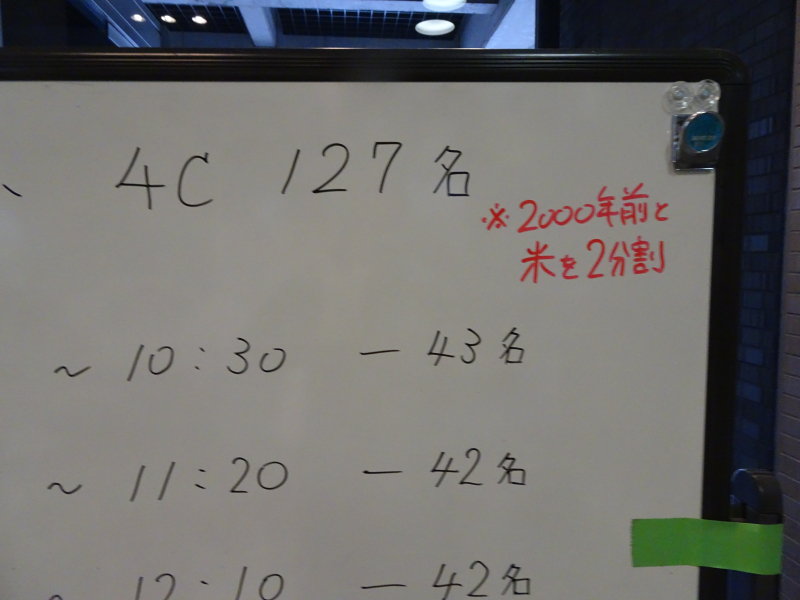 、 4C 127名
※2000年前と
米を2分割
~ 10:30 — 43名
~ 11:20 — 42名
~ 12:10 — 42名